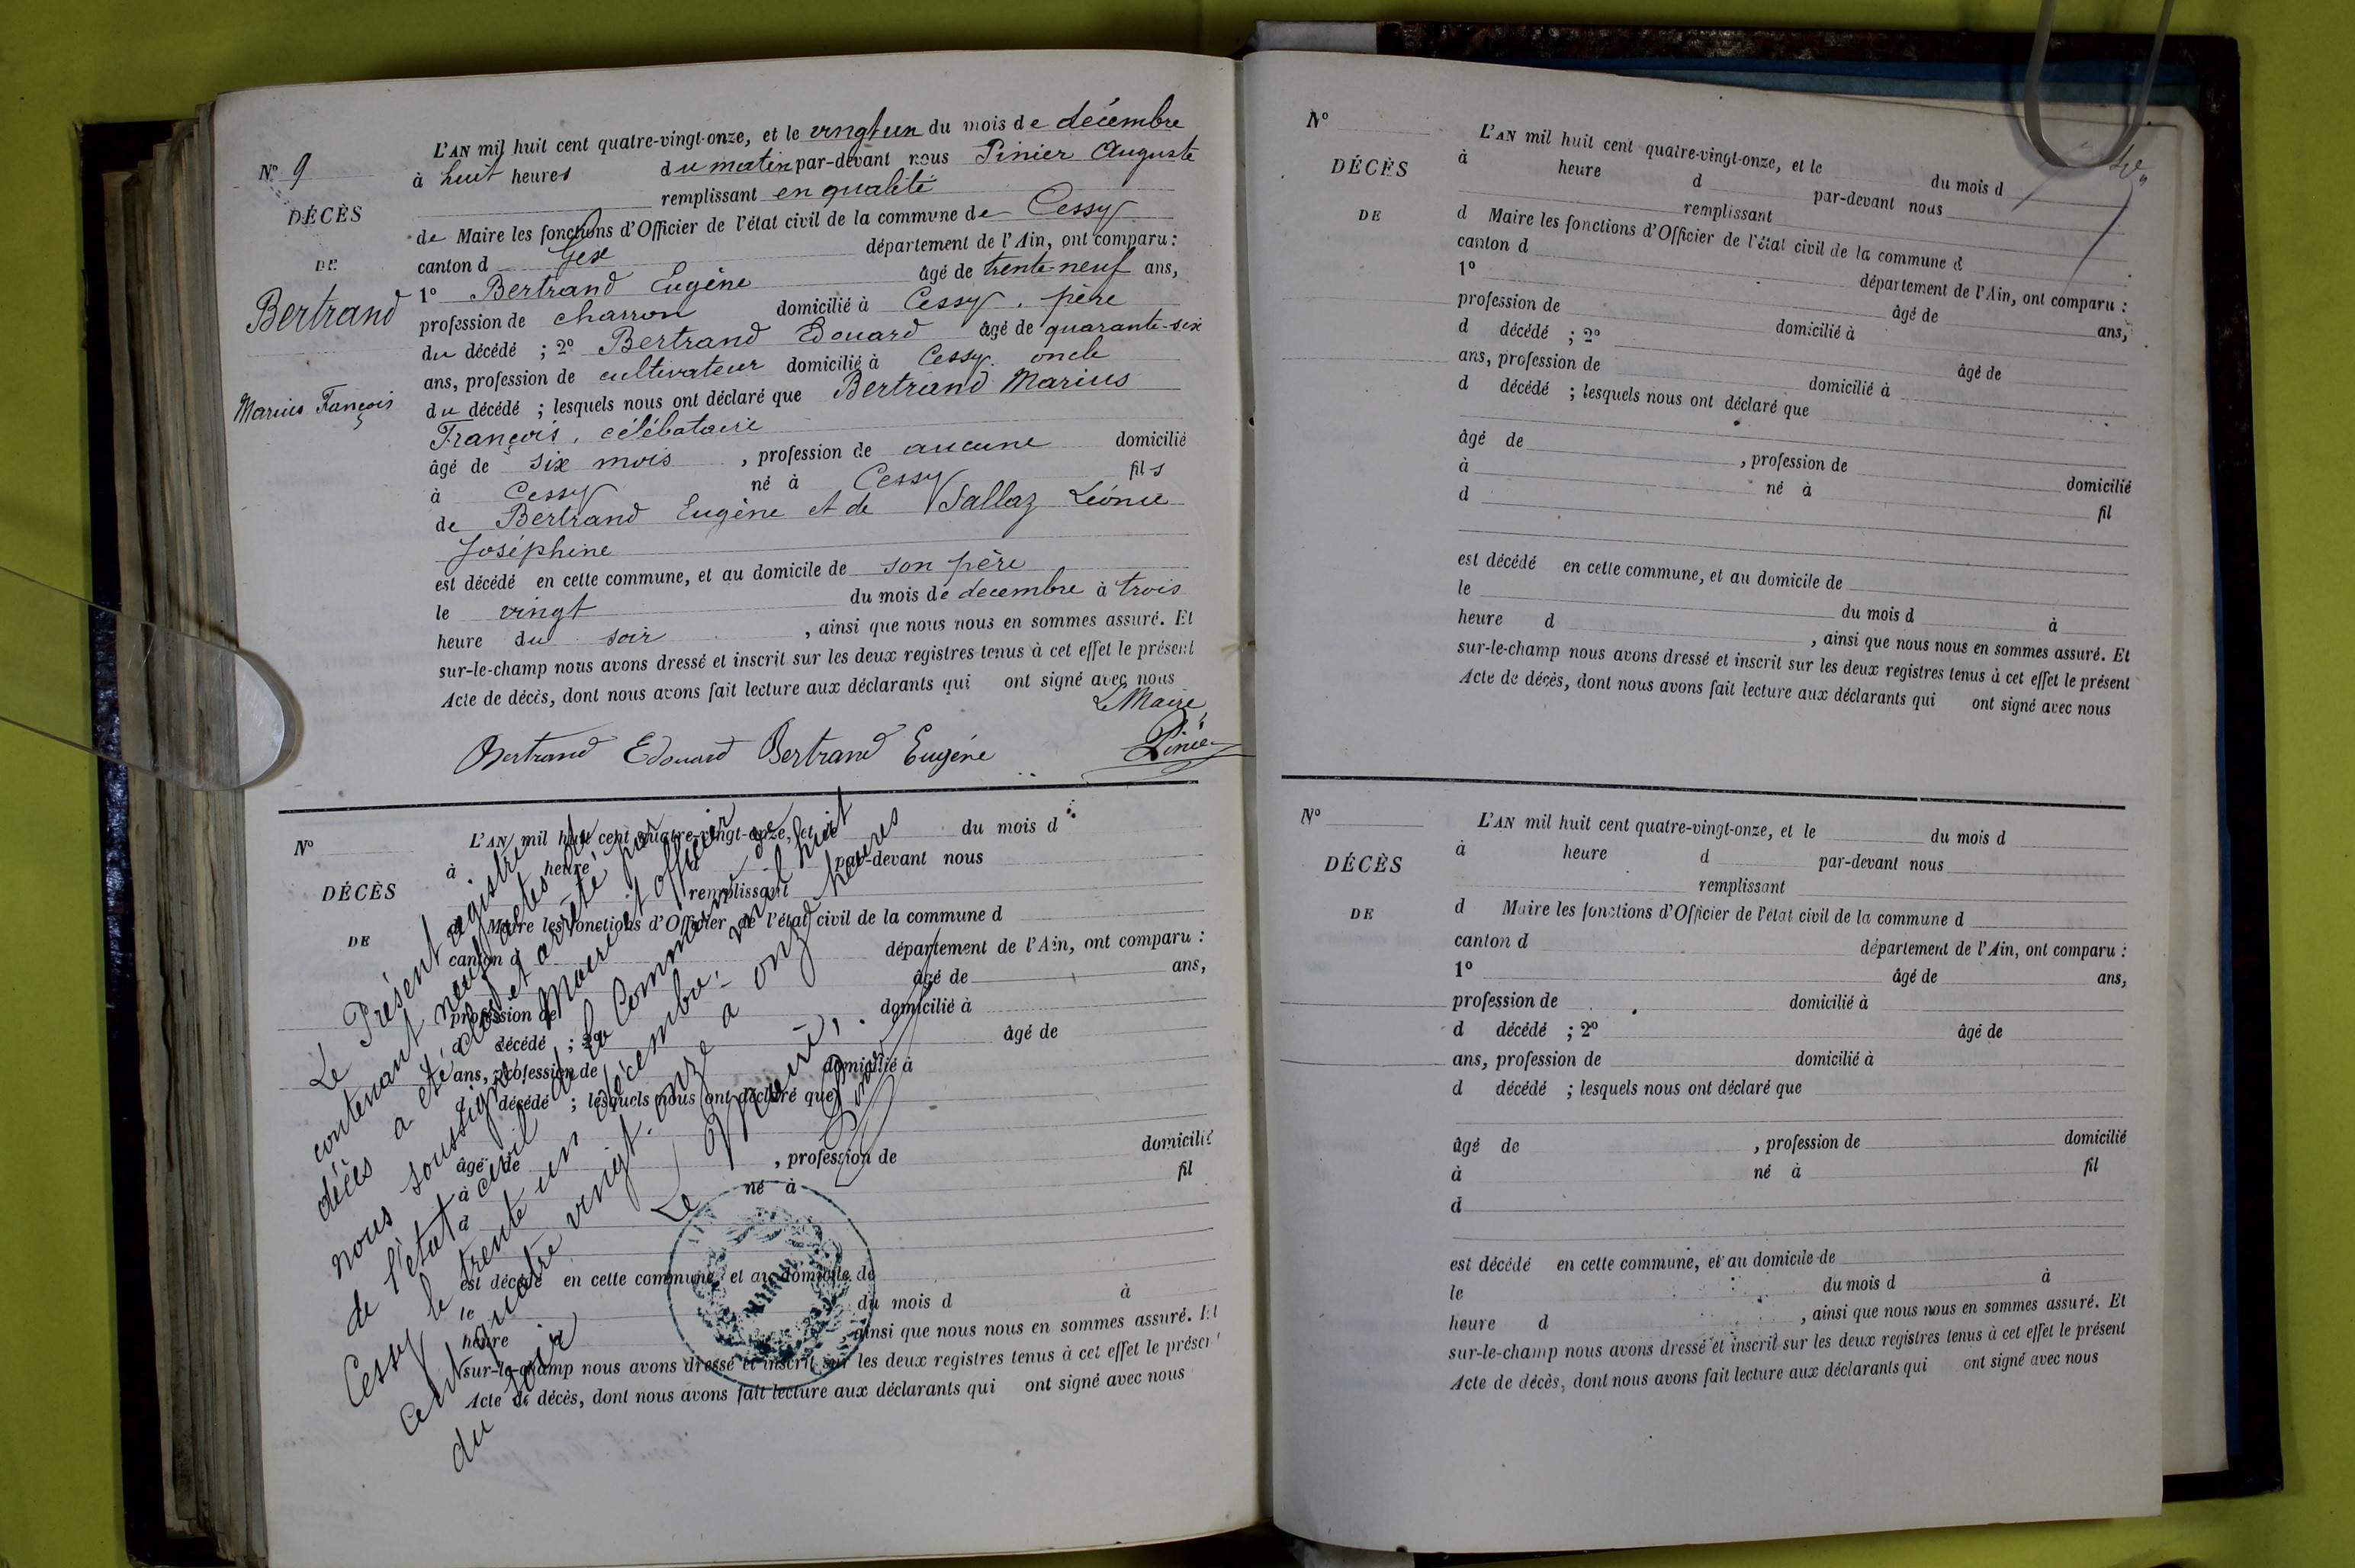 N° 9
DÉCÈS
DE
Bertrand
Marius François
L'AN mil huit cent quatre-vingt-onze, et le vingt un du mois de décembre
à huit heures du matin par-devant nous Pinier Auguste
remplissant en qualité
de Maire les fonctions d'Officier de l'état civil de la commune de Cessy
canton d Gex département de l'Ain, ont comparu :
1° Bertrand Eugène âgé de trente-neuf ans,
profession de charron domicilié à Cessy, père
du décédé ; 2° Bertrand Edouard âgé de quarante-six
ans, profession de cultivateur domicilié à Cessy. oncle
du décédé ; lesquels nous ont déclaré que Bertrand Marius
François, célébataire
âgé de six mois , profession de aucune domicilié
à Cessy né à Cessy fils
de Bertrand Eugène et de Sallaz Léonie
Joséphine
est décédé en cette commune, et au domicile de son père
le vingt du mois de decembre à trois
heure du soir , ainsi que nous nous en sommes assuré. Et
sur-le-champ nous avons dressé et inscrit sur les deux registres tenus à cet effet le présent
Acte de décès, dont nous avons fait lecture aux déclarants qui ont signé avec nous
Le Maire,
Bertrand Edouard Bertrand Eugéne Pinier
N°
DÉCÈS
DE
L'AN mil huit cent quatre-vingt-onze, et le du mois d
à heure par-devant nous
remplissant
d Maire les fonctions d'Officier de l'état civil de la commune d
canton d département de l'Ain, ont comparu :
âgé de ans,
profession de domicilié à
d décédé ; 2° âgé de
ans, profession de domicilié à
d décédé ; lesquels nous ont déclaré que
âgé de , profession de domicilié
à né à fil
d
est décédé en cette commune, et au domicile de
le du mois d à
heure , ainsi que nous nous en sommes assuré. Et
sur-le-champ nous avons dressé et inscrit sur les deux registres tenus à cet effet le présent
Acte de décès, dont nous avons fait lecture aux déclarants qui ont signé avec nous
Le Présent registre
contenant neuf actes de
décès a été clos et arrêté par
nous soussigné Maire et officier
de l'état civil de la Commune de
Cessy le trente un décembre mil huit
cent quatre vingt-onze à onze heures
du soir
Le Maire,
Pinier
N°
DÉCÈS
DE
L'AN mil huit cent quatre-vingt-onze, et le du mois d
à heure d par-devant nous
remplissant
d Maire les fonctions d'Officier de l'état civil de la commune d
canton d département de l'Ain, ont comparu :
1° âgé de ans,
profession de domicilié à
d décédé ; 2° âgé de
ans, profession de domicilié à
d décédé ; lesquels nous ont déclaré que
âgé de , profession de domicilié
à né à fil
d
est décédé en cette commune, et au domicile de
le du mois d à
heure d , ainsi que nous nous en sommes assuré. Et
sur-le-champ nous avons dressé et inscrit sur les deux registres tenus à cet effet le présent
Acte de décès, dont nous avons fait lecture aux déclarants qui ont signé avec nous
N°
DÉCÈS
DE
L'AN mil huit cent quatre-vingt-onze, et le du mois d
à heure d par-devant nous
remplissant
d Maire les fonctions d'Officier de l'état civil de la commune d
canton d département de l'Ain, ont comparu :
1° âgé de ans,
profession de domicilié à
d décédé ; 2° âgé de
ans, profession de domicilié à
d décédé ; lesquels nous ont déclaré que
âgé de , profession de domicilié
à né à fil
d
est décédé en cette commune, et au domicile de
le du mois d à
heure d , ainsi que nous nous en sommes assuré. Et
sur-le-champ nous avons dressé et inscrit sur les deux registres tenus à cet effet le présent
Acte de décès, dont nous avons fait lecture aux déclarants qui ont signé avec nous